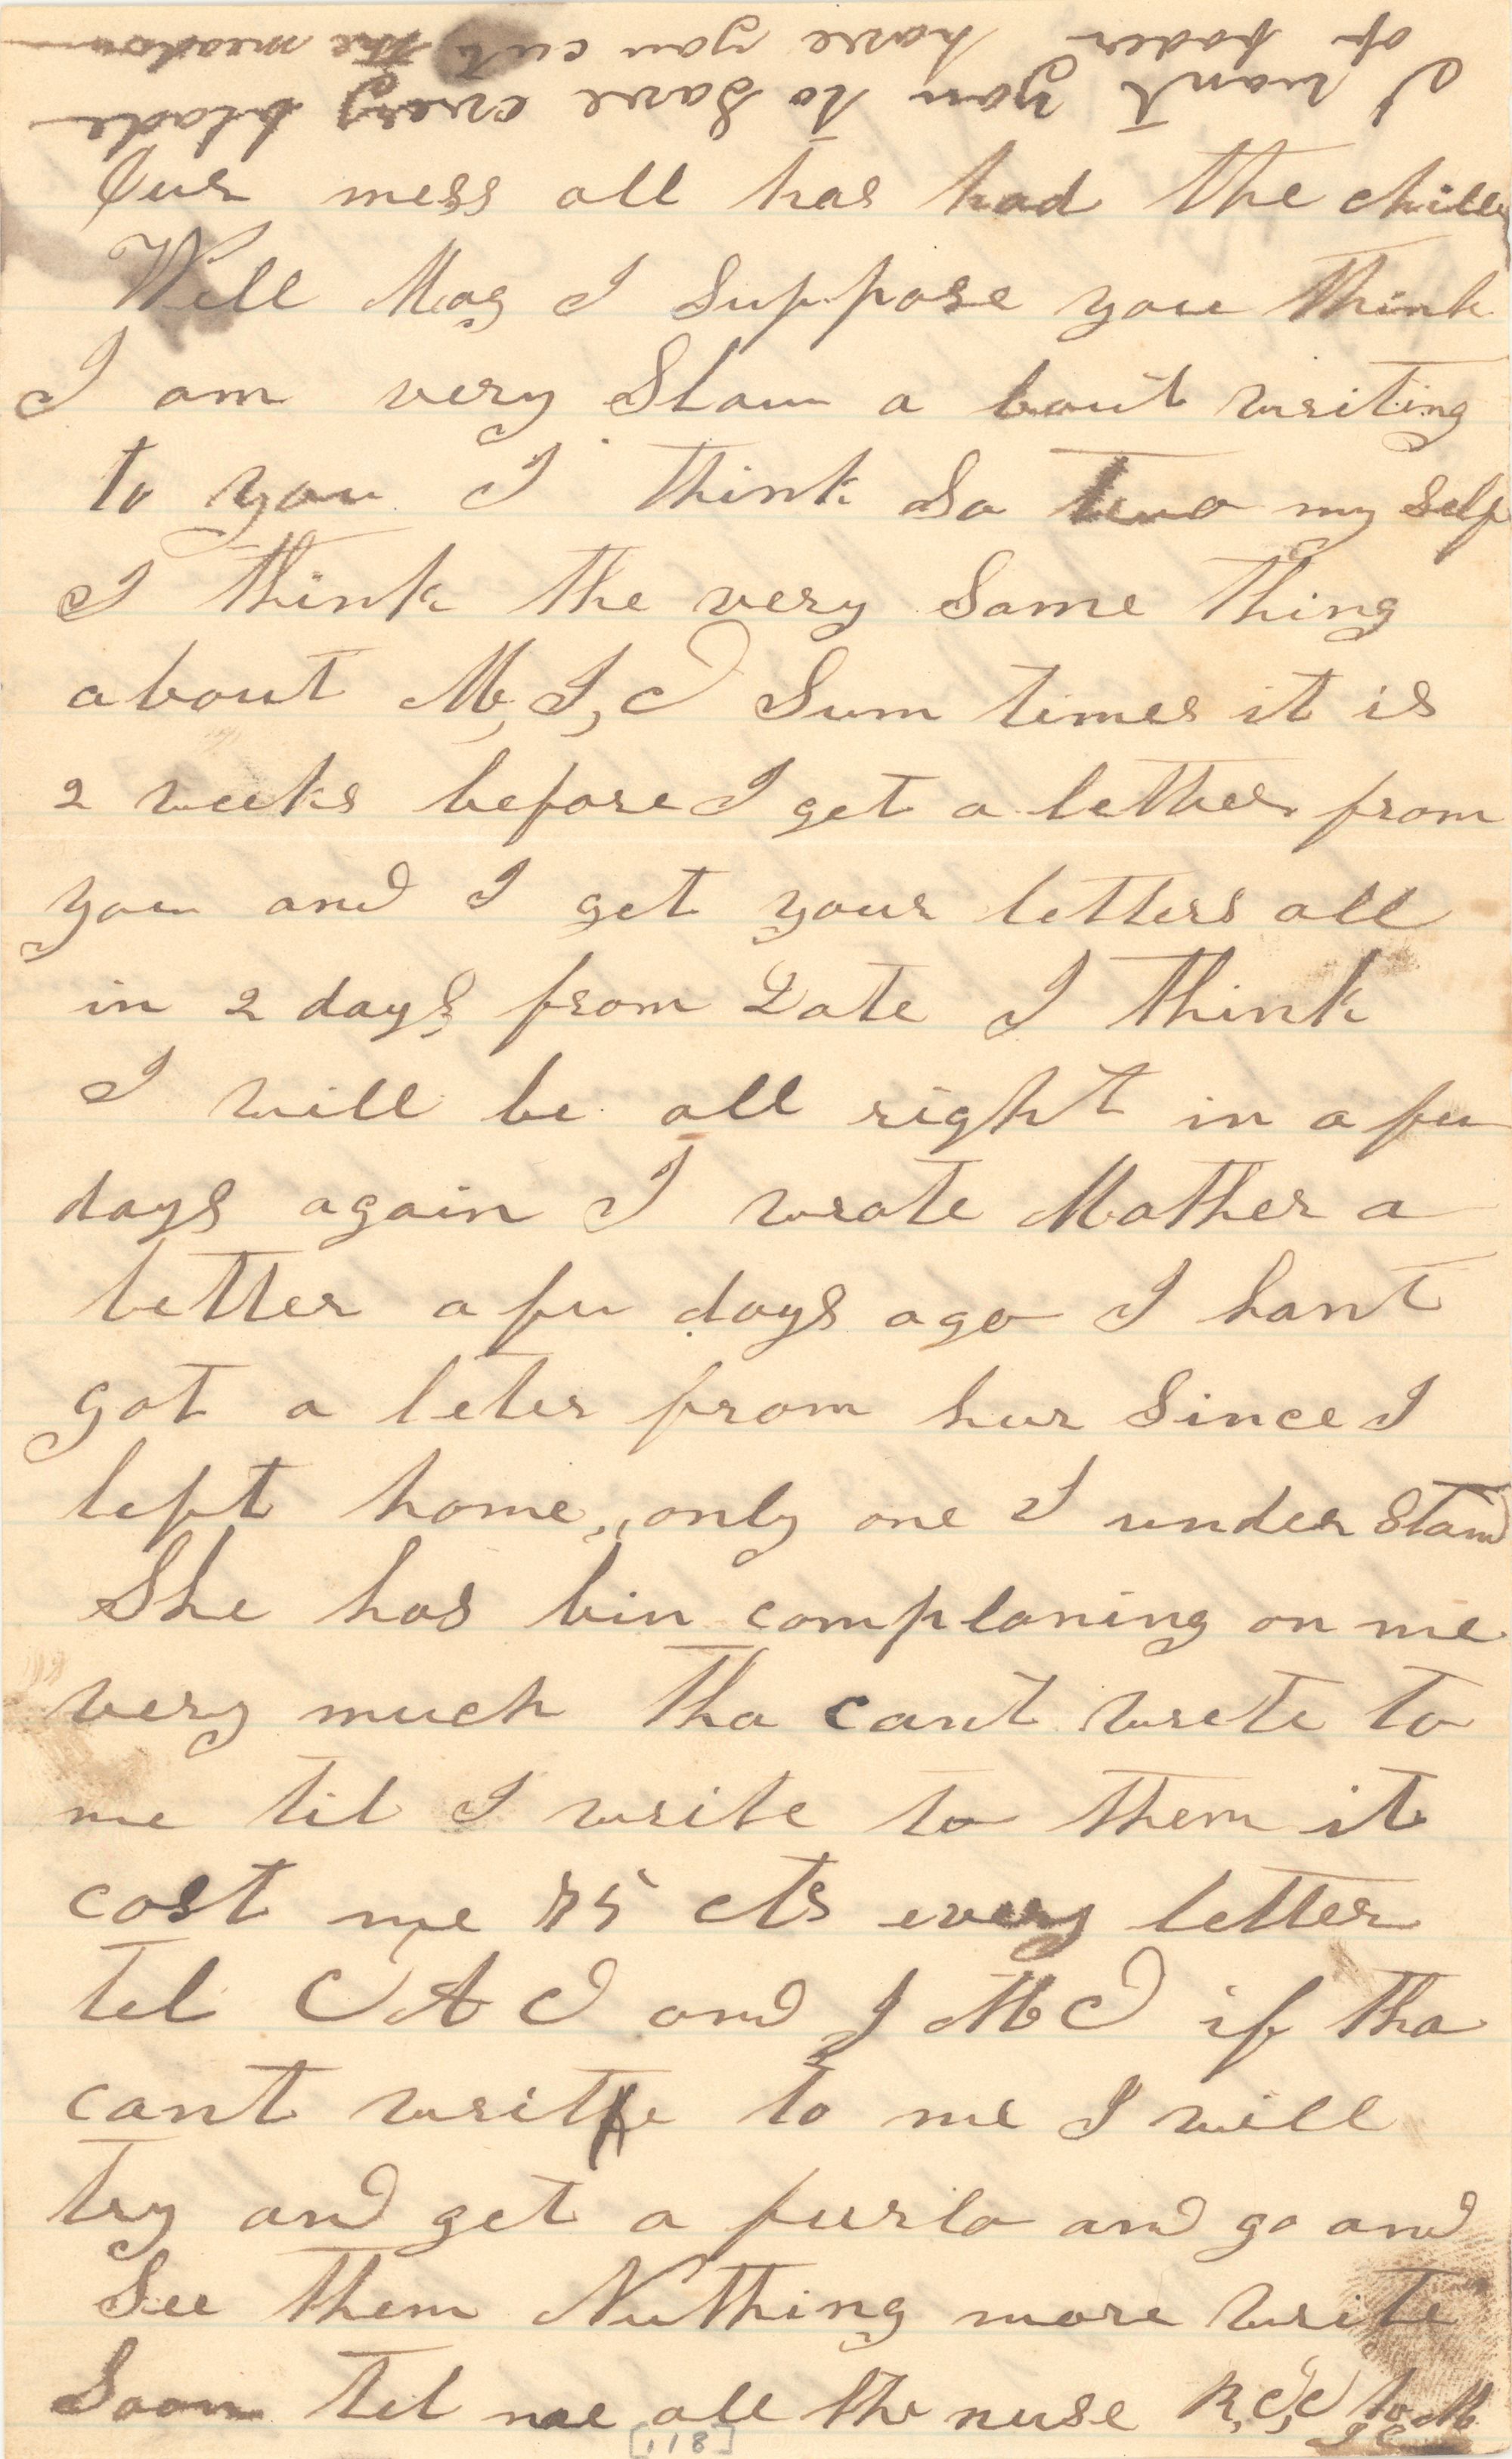 I want you to Save every blade
of foder have you cut the meadow
Our mess all has had the chills
Well Mag I Suppose you think
I am very Slow a bout writing
to you I think So two my Self
I think the very Same thing
about M, I, C Sum times it is
2 weeks before I get a letter from
you and I get your letters all
in 2 days from Date I think
I will be all right in a fu
days again I wrote Mother a
letter a fu days ago I hant
got a leter from hur Since I
left home, only one I under Stand
She has bin complaning on me
very much tha cant wrete to
me til I write to them it
cost me 75 cts every letter
tel C A C and J M C if tha
cant write to me I will
try and get a furlo and go and
See them Nuthing more write
Soon tel me all the nuse R, C, C to M
I C
[118]